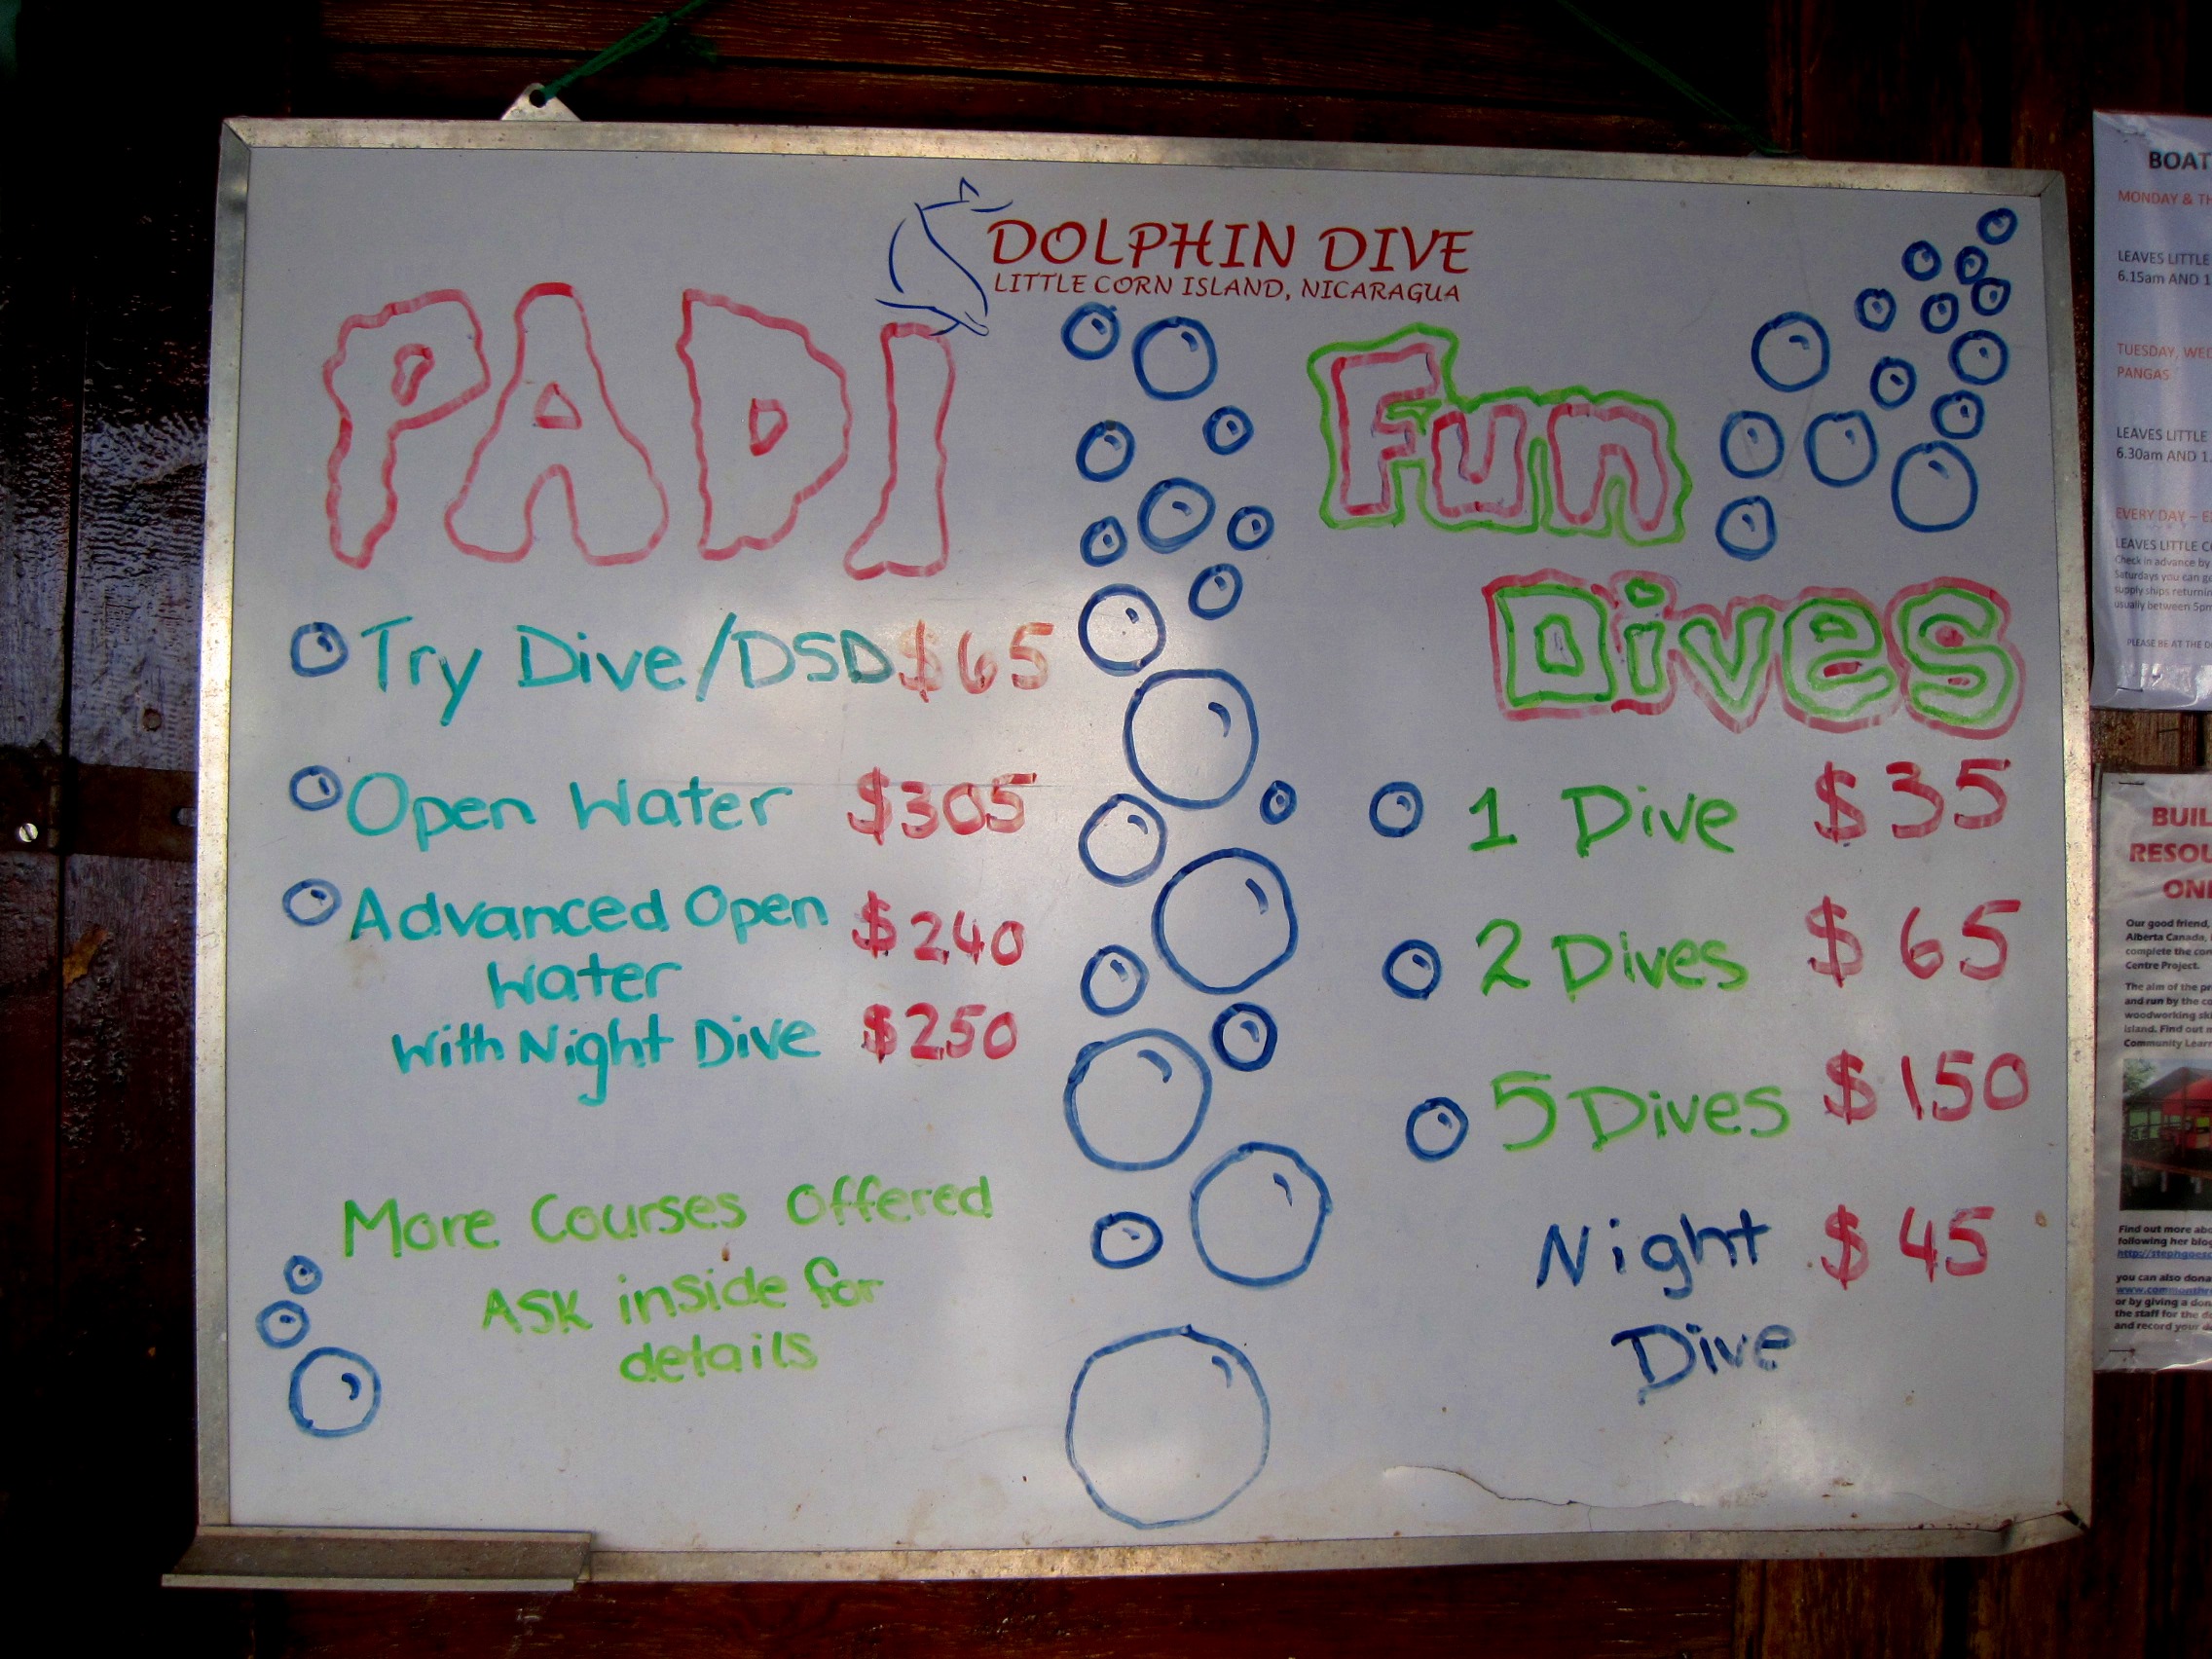 DOLPHIN DIVE
LITTLE CORN ISLAND, NICARAGUA
PADI
Try Dive/DSD $65
Open Water $305
Advanced Open $240
Water
With Night Dive $250
More Courses Offered
ASK inside for
details
Fun
Dives
1 Dive $35
2 Dives $65
5 Dives $150
Night $45
Dive
BOAT
MONDAY & TH
LEAVES LITTLE
6.15am AND 1
TUESDAY, WED
PANGAS
LEAVES LITTLE
6.30am AND 1.
EVERY DAY – E
LEAVES LITTLE C
Check in advance by
Saturdays you can ge
supply ships returnin
usually between 5pm
PLEASE BE AT THE D
BUIL
RESOU
ON
Our good friend,
Alberta Canada,
complete the con
Centre Project.
The aim of the pr
and run by the co
woodworking ski
island. Find out m
Community Learn
Find out more abo
following her blog
http://stephgoes
you can also dona
www.commonthr
or by giving a don
the staff for the d
and record your d